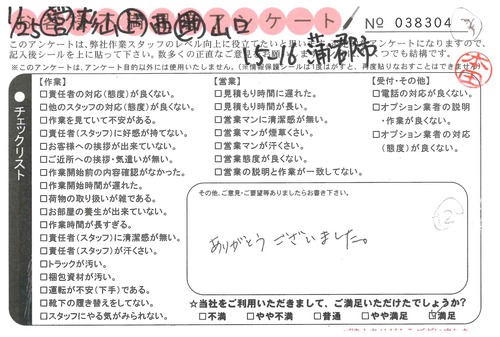 1/25 営 津松 上 西 山口 ケート
No 038304
このアンケートは、弊社作業スタッフのレベル向上に役立てたいと思い
アンケートになりますので、
記入後シールを上に貼って下さい。数多くの正直な
つでも結構です。
15-16 蒲郡市
※このアンケートは、アンケート目的以外には使用いたしません。(※情報保護シールは1度はがすと、再度貼りなおすことはできません)
チェックリスト
【作業】
□責任者の対応(態度)が良くない。
□他のスタッフの対応(態度)が良くない。
□作業を見ていて不安がある。
□責任者(スタッフ)に好感が持てない。
□お客様への挨拶が出来ていない。
□ご近所への挨拶・気遣いが無い。
□作業開始前の内容確認がなかった。
□作業開始時間が遅れた。
□荷物の取り扱いが雑である。
□お部屋の養生が出来ていない。
□作業時間が長すぎる。
□責任者(スタッフ)に清潔感が無い。
□責任者(スタッフ)が汗くさい。
□トラックが汚い。
□梱包資材が汚い。
□運転が不安(下手)である。
□靴下の履き替えをしてない。
□スタッフにやる気がみられない。
【営業】
□見積もり時間に遅れた。
□見積もり時間が長い。
□営業マンに清潔感が無い。
□営業マンが煙草くさい。
□営業マンが汗くさい。
□営業態度が良くない。
□営業の説明と作業が一致してない。
【受付・その他】
□電話の対応が良くない。
□オプション業者の説明
・作業が良くない。
□オプション業者の対応
(態度)が良くない。
その他、ご意見・ご要望等ありましたらお書き下さい。
ありがとうございました。
②
☆当社をご利用いただきまして、ご満足いただけたでしょうか?
□不満 □やや不満 □普通 □やや満足 ☑満足